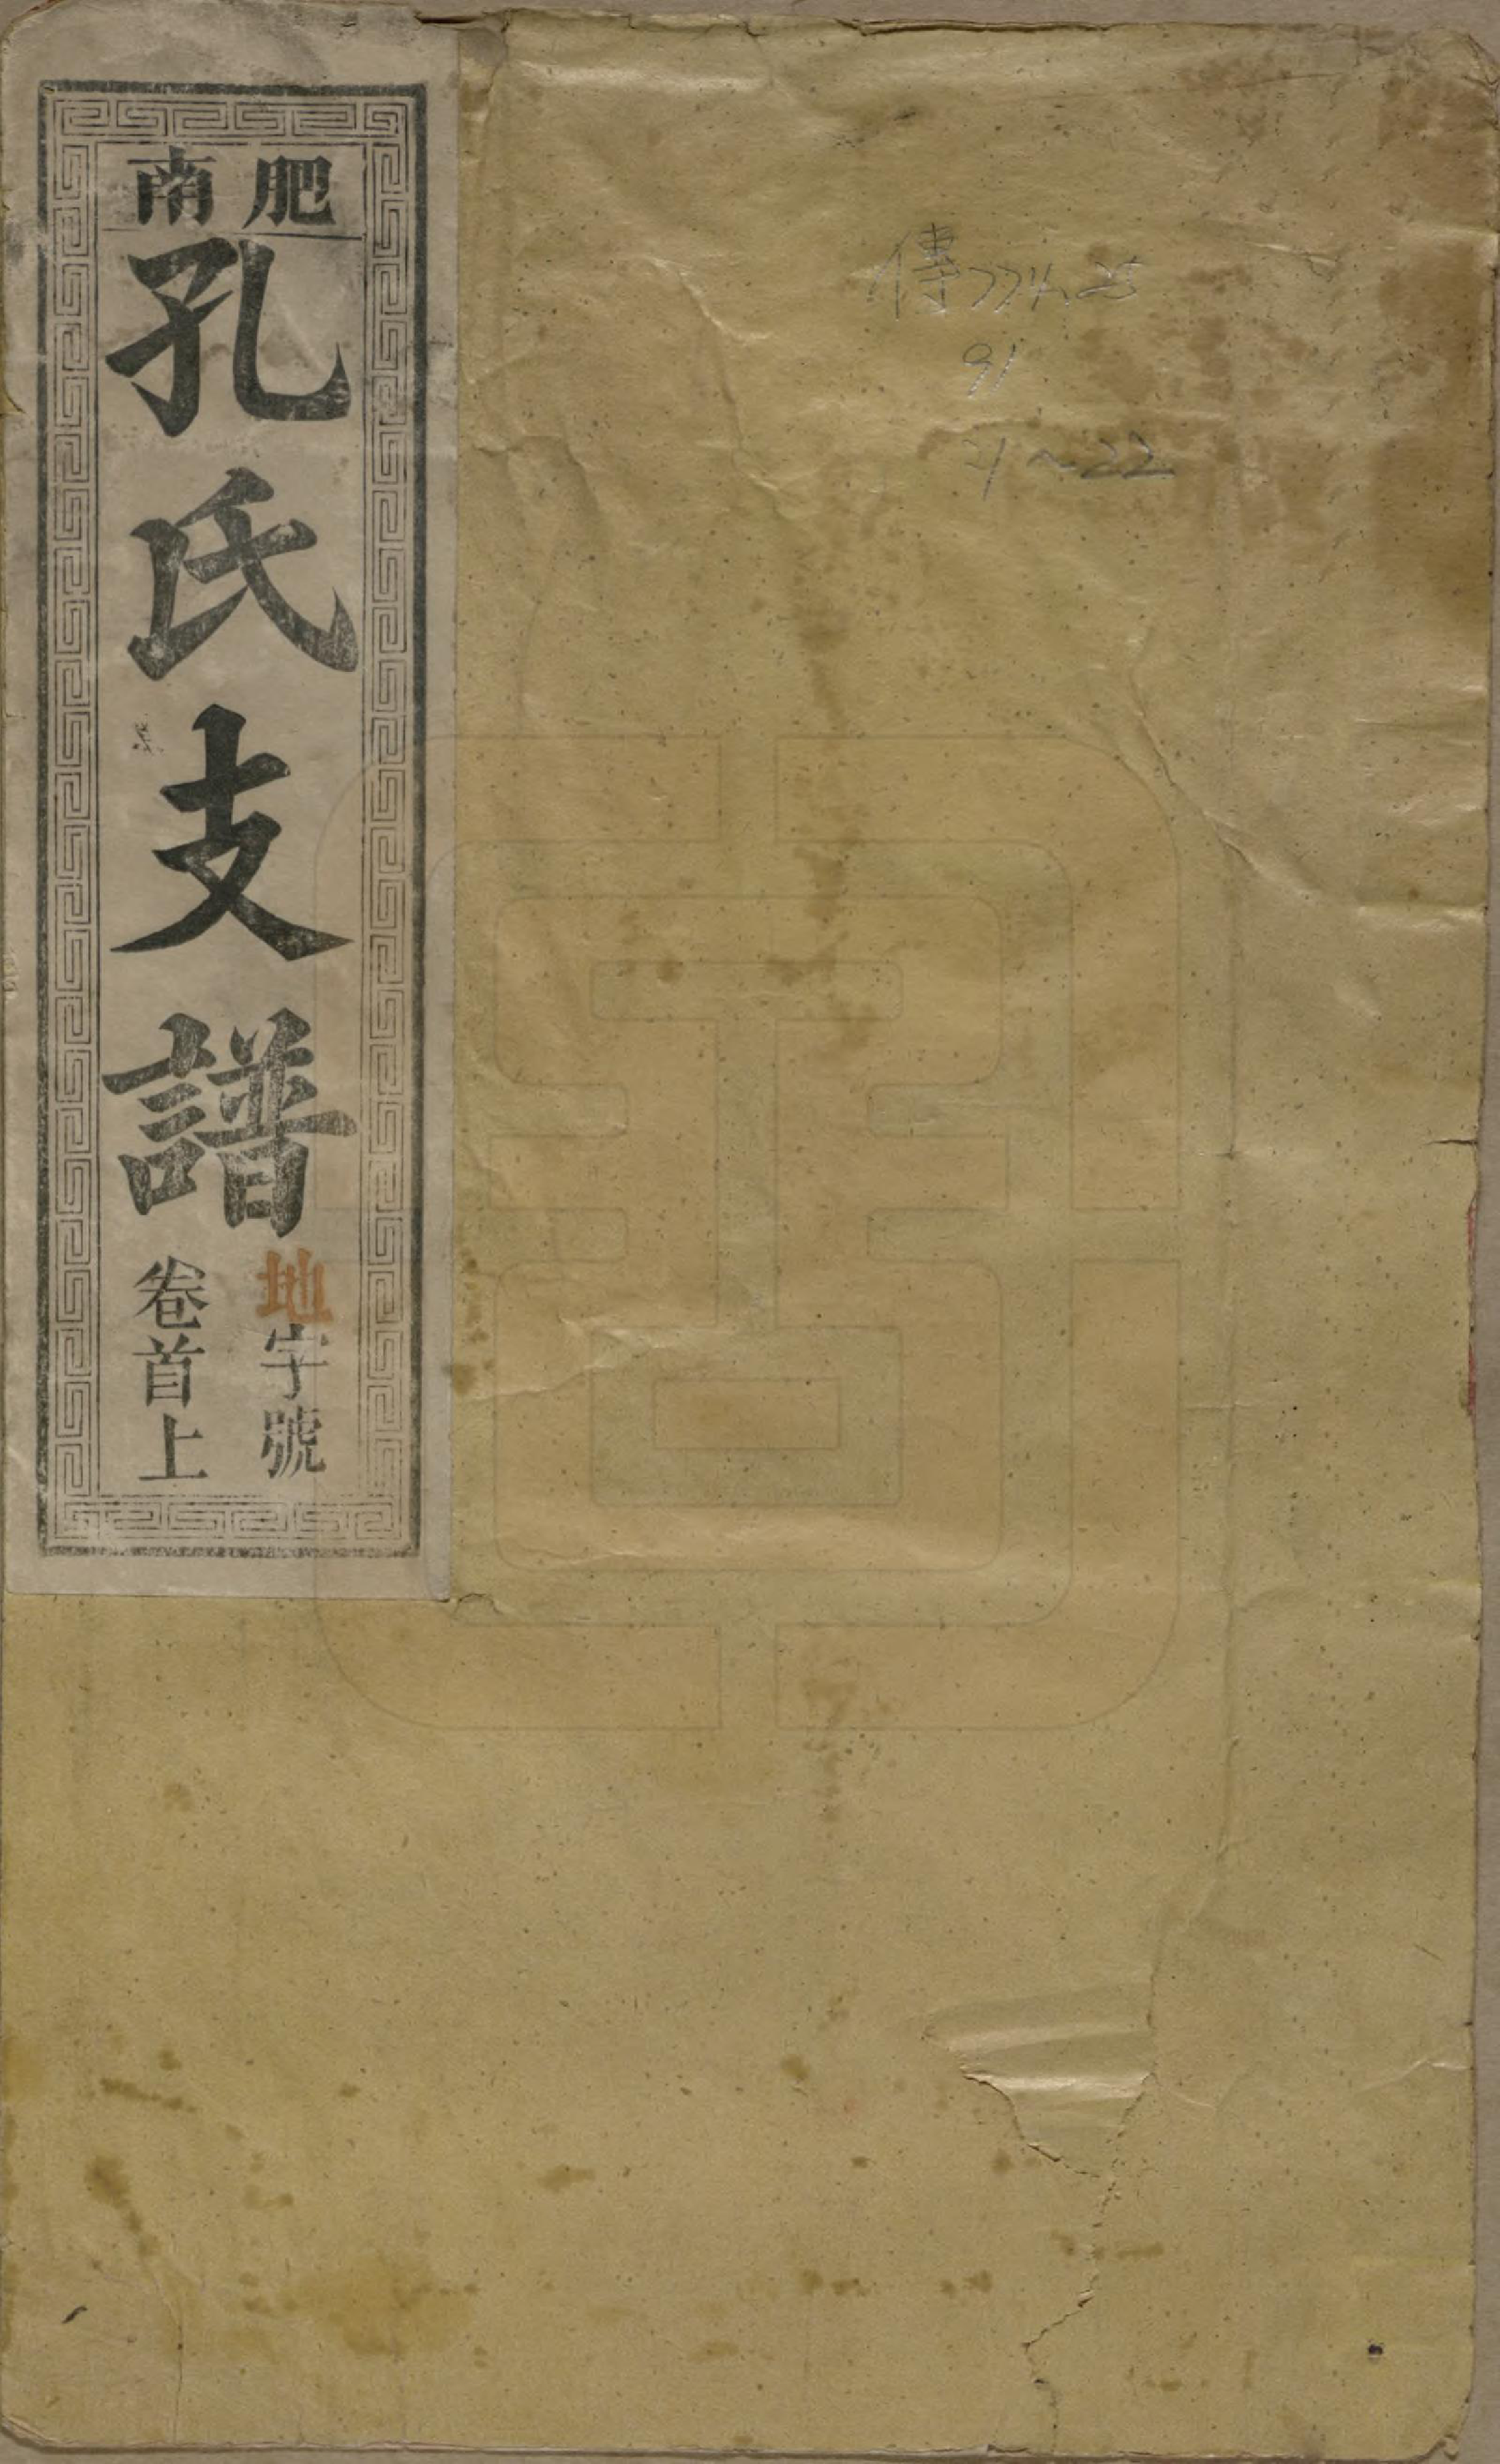 肥南
孔氏支譜
地字號
卷首上
傳774.25
91
21~22